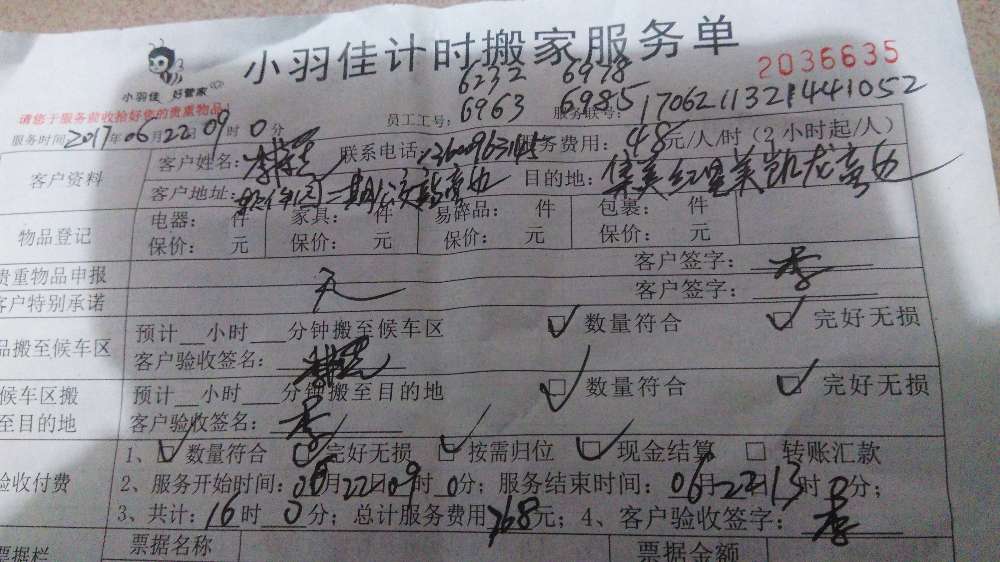 小羽佳计时搬家服务单
2036635
小羽佳 好管家
请您于服务前收拾好您的贵重物品!
6232 6978
员工工号: 6963 6985 服务联号: 1706211321441052
服务时间2017年06月22日09时0分
客户资料 客户姓名: 联系电话: 服务费用: 48元/人/时(2小时起/人)
客户地址: 目的地: 集美红星美凯龙旁边
物品登记 电器: 件 家具: 件 易碎品: 件 包裹: 件
保价: 元 保价: 元 保价: 元 保价: 元
贵重物品申报 客户签字: 李
客户特别承诺 无 客户签字:
品搬至候车区 预计__小时___分钟搬至候车区 数量符合 完好无损
客户验收签名:
候车区搬至目的地 预计__小时___分钟搬至目的地 数量符合 完好无损
客户验收签名: 李
验收付费 1、数量符合 完好无损 按需归位 现金结算 转账汇款
2、服务开始时间:06月22日09时0分;服务结束时间:06月22日13时0分;
3、共计:16时0分;总计服务费用768元;4、客户验收签字: 李
票据栏 票据名称 票据金额